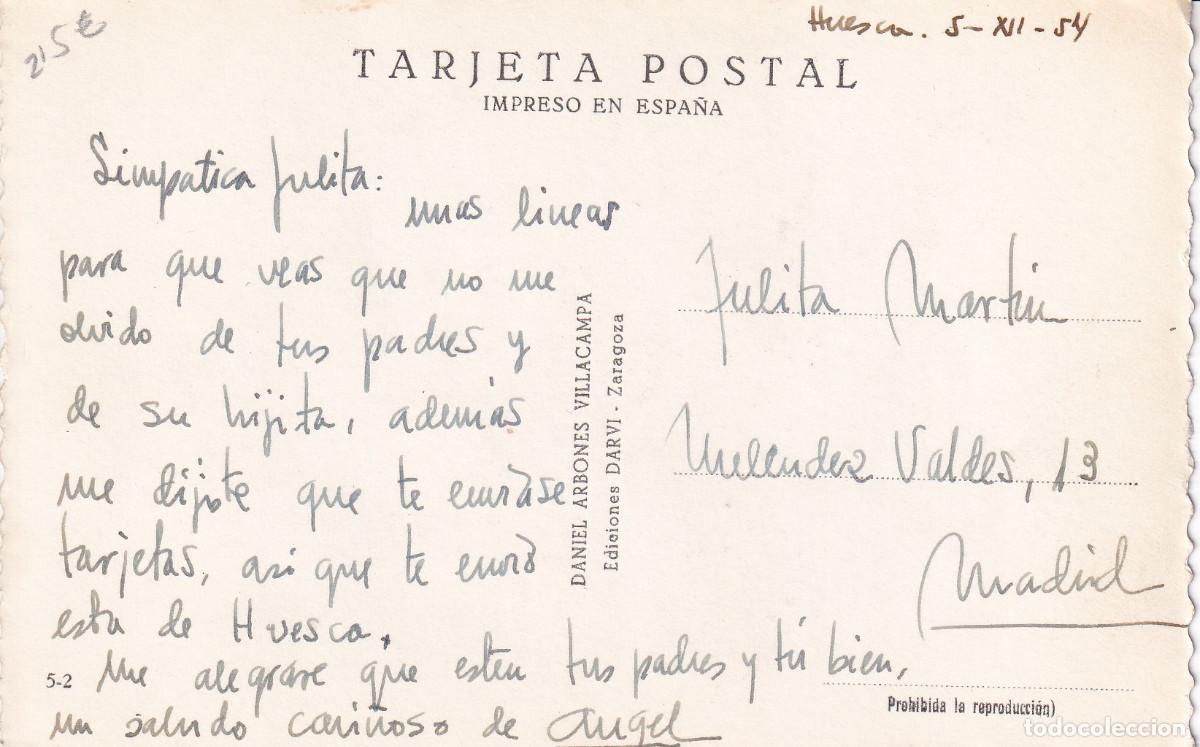 2'5€
Huesca. 5-XII-54
TARJETA POSTAL
IMPRESO EN ESPAÑA
Simpatica Julita:
unas lineas
para que veas que no me
olvido de tus padres y
de su hijita, además
me dijste que te enviàse
tarjetas, asi que te enviò
esta de Huesca.
Me alegrare que esten tus padres y tú bien,
un saludo cariñoso de Angel
5-2
DANIEL ARBONES VILLACAMPA
Ediciones DARVI - Zaragoza
Julita Martin
Melendez Valdes, 13
Madrid
Prohibida la reproducción)
todocoleccion